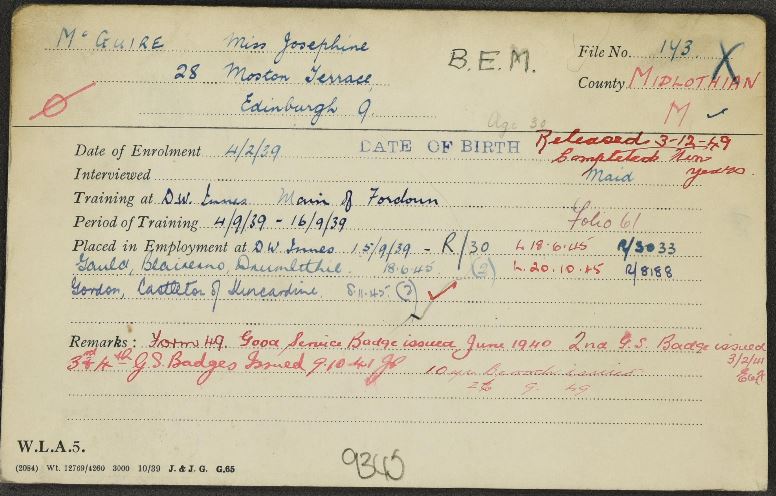 McGUIRE Miss Josephine B.E.M. File No. 143. X
28 Moston Terrace, County MIDLOTHIAN
Edinburgh 9. M
Age 30
Date of Enrolment 4/2/39 DATE OF BIRTH Released 3-12-49
Interviewed Maid Completed Ten years.
Training at D.W. Innes Main of Fordoun
Period of Training 4/9/39 - 16/9/39 Folio 61
Placed in Employment at D.W. Innes 15/9/39 - R/30 L.18.6.45 R/3033
Gauld, Drumlithie. 18.6.45 (2) L.20.10.45 R/8188
Gordon, Castleton of Kincardine 8.11.45 (2)
Remarks: Form 49. Good Service Badge issued June 1940 2nd G.S. Badge issued 3/2/41
3rd & 4th G.S. Badges Issued 9.10.41 10 yr
9. 49
W.L.A.5.
(2084) Wt. 12769/4260 3000 10/39 J. & J. G. G.65
9345